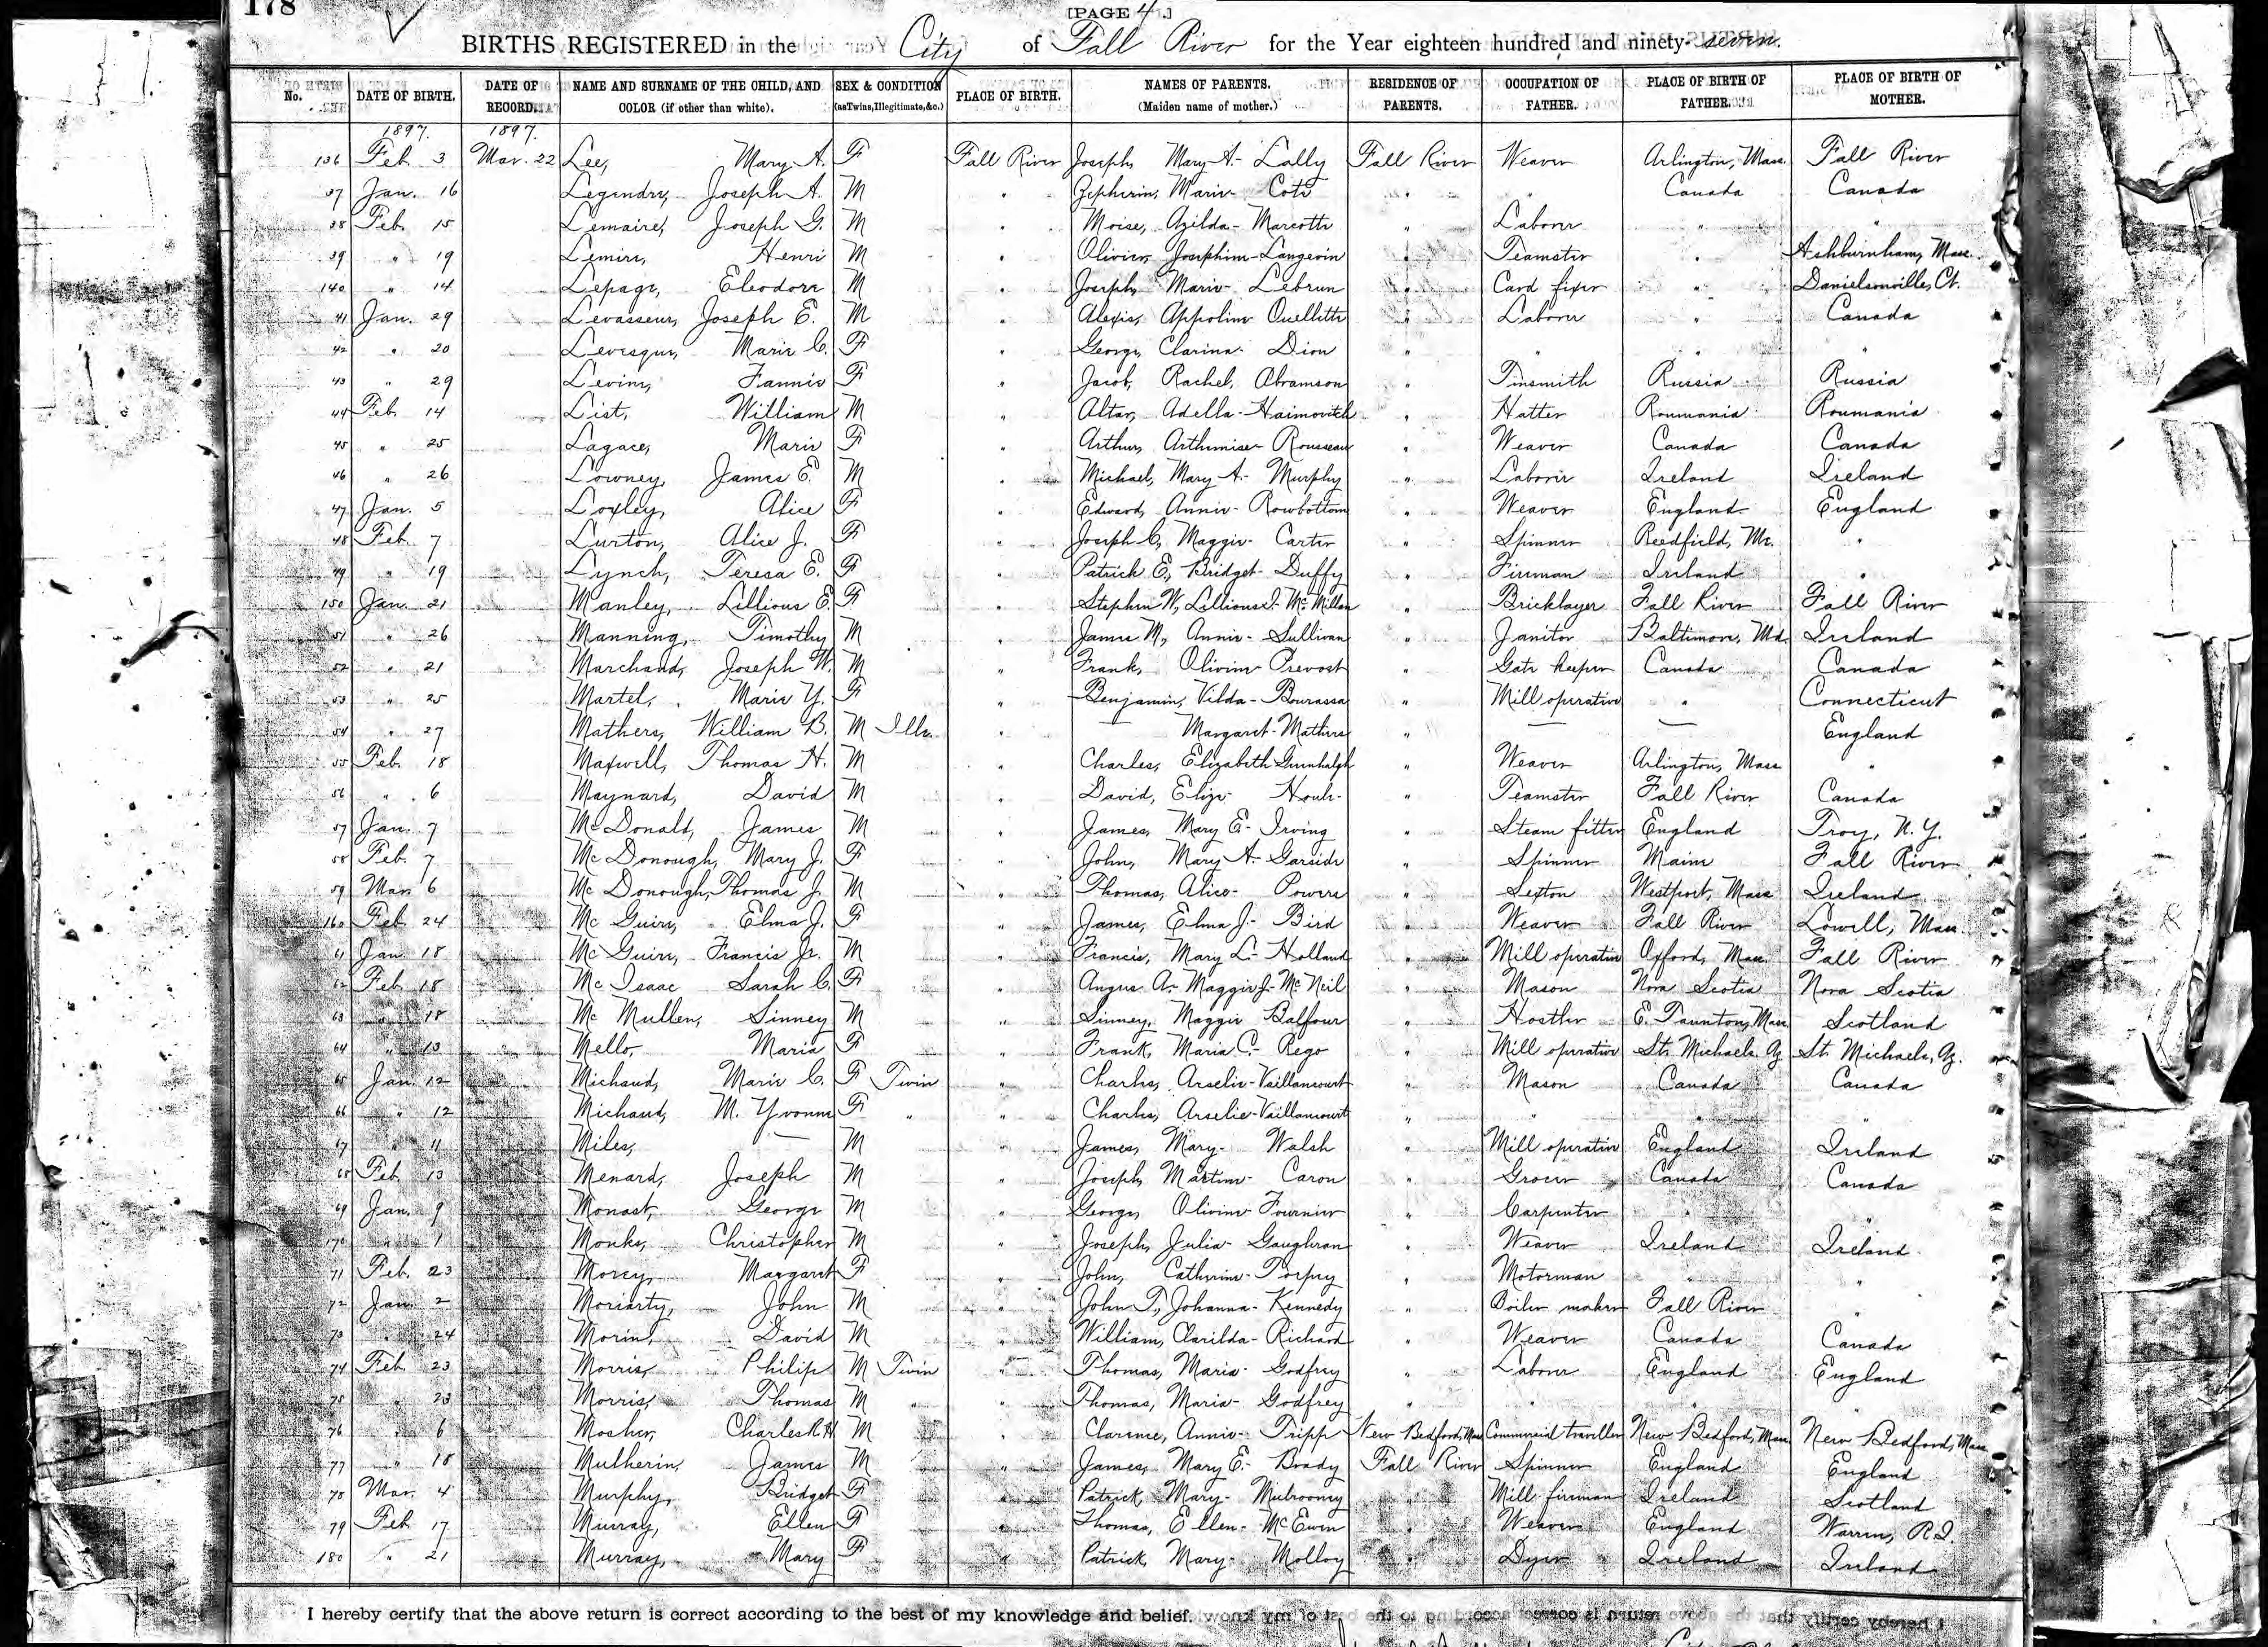 178
[PAGE 4.]
BIRTHS REGISTERED in the City of Fall River for the Year eighteen hundred and ninety-seven.
No. DATE OF BIRTH. DATE OF RECORD. NAME AND SURNAME OF THE CHILD, AND COLOR (if other than white). SEX & CONDITION (as Twins, Illegitimate, &c.) PLACE OF BIRTH. NAMES OF PARENTS. (Maiden name of mother.) RESIDENCE OF PARENTS. OCCUPATION OF FATHER. PLACE OF BIRTH OF FATHER. PLACE OF BIRTH OF MOTHER.
1897. 1897.
136 Feb. 3 Mar. 22 Lee, Mary A. F Fall River Joseph, Mary A.- Lally Fall River Weaver Arlington, Mass. Fall River
37 Jan. 16 Legendre, Joseph A. M " Zepherin, Marie- Cote " " Canada Canada
38 Feb. 15 Lemaire, Joseph G. M " Moise, Azilda- Marcotte " Laborer " "
39 " 19 Lemire, Henri M " Olivier, Josephine- Langevin " Teamster " Ashburnham, Mass.
140 " 14 Lepage, Eleodore M " Joseph, Marie- Lebrun " Card fixer " Danielsonville, Ct.
41 Jan. 29 Levasseur, Joseph E. M " Alexis, Appoline Ouellette " Laborer " Canada
42 " 20 Levesque, Marie C. F " George, Clarina- Dion " " " "
43 " 29 Levine, Fannie F " Jacob, Rachel, Abramson " Tinsmith Russia Russia
44 Feb. 14 List, William M " Altar, Adella- Haimovitch " Hatter Roumania Roumania
45 " 25 Lagace, Marie F " Arthur, Arthemise- Rousseau " Weaver Canada Canada
46 " 26 Lowney, James E. M " Michael, Mary A.- Murphy " Laborer Ireland Ireland
47 Jan. 5 Loxley, Alice F " Edward, Annie- Rowbottom " Weaver England England
48 Feb. 7 Lurton, Alice J. F " Joseph C, Maggie- Carter " Spinner Reedfield, Me. "
49 " 19 Lynch, Teresa E. F " Patrick E., Bridget- Duffy " Fireman Ireland "
150 Jan. 21 Manley, Lillious E. F " Stephen W, Lillious J- McMillan " Bricklayer Fall River Fall River
51 " 26 Manning, Timothy M " James M., Annie- Sullivan " Janitor Baltimore, Md. Ireland
52 " 21 Marchand, Joseph W. M " Frank, Olivine Prevost " Gate keeper Canada Canada
53 " 25 Martel, Marie Y. F " Benjamin, Vilda- Bourassa " Mill operative " Connecticut
54 " 27 Mathers, William B. M Ille. " — Margaret- Mathers " — — England
55 Feb. 18 Maxwell, Thomas H. M " Charles, Elizabeth Greenhalgh " Weaver Arlington, Mass "
56 " 6 Maynard, David M " David, Eliza- Houle- " Teamster Fall River Canada
57 Jan. 7 McDonald, James M " James, Mary E- Irving " Steam fitter England Troy, N.Y.
58 Feb. 7 McDonough, Mary J. F " John, Mary A- Garside " Spinner Maine Fall River
59 Mar. 6 McDonough, Thomas J. M " Thomas, Alice- Powers " Sexton Westport, Mass Ireland
160 Feb. 24 McGuire, Elma J. F " James, Elma J- Bird " Weaver Fall River Lowell, Mass.
61 Jan. 18 McGuire, Francis Jr. M " Francis, Mary L- Holland " Mill operative Oxford, Mass. Fall River
62 Feb. 18 McIsaac Sarah C. F " Angus A.- Maggie J- McNeil " Mason Nova Scotia Nova Scotia
63 " 18 McMullen, Sinney M " Sinney, Maggie Balfour " Hostler E. Taunton, Mass. Scotland
64 " 13 Mello, Maria F " Frank, Maria C.- Rego " Mill operative St. Michaels Az St. Michaels, Az.
65 Jan. 12 Michaud, Marie C. F Twin " Charles, Arselie- Vaillancourt " Mason Canada Canada
66 " 12 Michaud, M. Yvonne F " " Charles, Arselie- Vaillancourt " " " "
67 " 11 Miles, — M " James, Mary- Walsh " Mill operative England Ireland
68 Feb. 13 Menard, Joseph M " Joseph, Martine- Caron " Grocer Canada Canada
69 Jan. 9 Monast, George M " George, Olivine Fournier " Carpenter " "
170 " 1 Monks, Christopher M " Joseph, Julia- Gaughran " Weaver Ireland Ireland
71 Feb. 23 Morey, Margaret F " John, Catherine- Torpey " Motorman " "
72 Jan. 2 Moriarty, John M " John T., Johanna- Kennedy " Boiler maker Fall River "
73 " 24 Morin, David M " William, Clarilda- Richard " Weaver Canada Canada
74 Feb. 23 Morris, Philip M Twin " Thomas, Maria- Godfrey " Laborer England England
75 " 23 Morris, Thomas M " " Thomas, Maria- Godfrey " " " "
76 " 6 Mosher, Charles R.H M " Clarence, Annie- Tripp New Bedford, Mass Commercial traveller New Bedford, Mass New Bedford, Mass
77 " 18 Mulherin, James M " James, Mary E.- Brady Fall River Spinner England England
78 Mar. 4 Murphy, Bridget F " Patrick, Mary- Mulrooney " Mill fireman Ireland Scotland
79 Feb. 17 Murray, Ellen F " Thomas, Ellen- McEwen " Weaver England Warren, R.I.
180 " 21 Murray, Mary F " Patrick, Mary- Molloy " Dyer Ireland Ireland
I hereby certify that the above return is correct according to the best of my knowledge and belief.